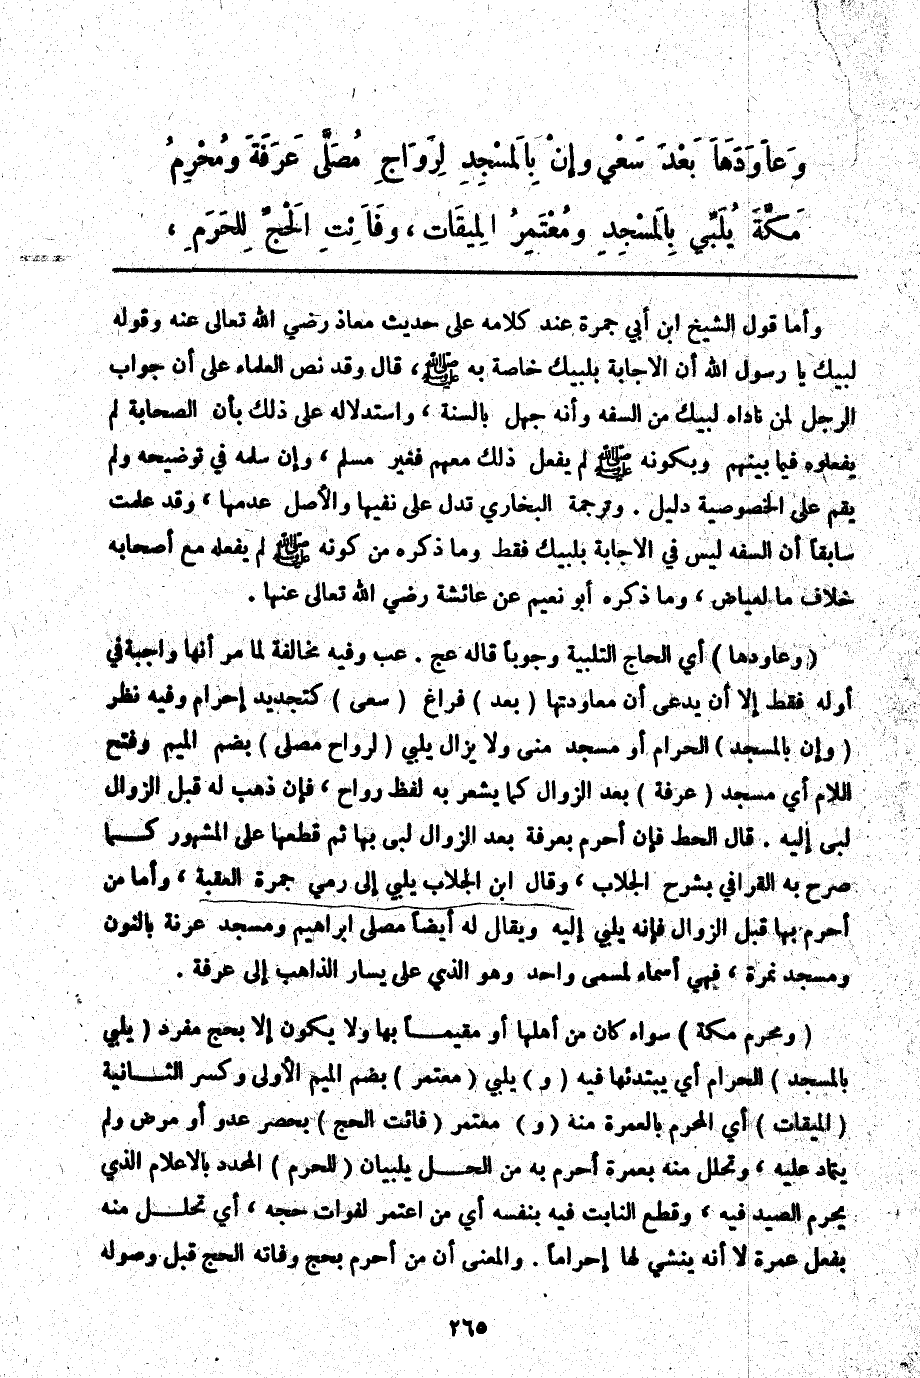 وَعَاوَدَهَا بَعْدَ سَعْيٍ وإنْ بِالمَسْجِدِ لِرَوَاحِ مُصَلَّى عَرَفَةَ ومُحْرِمُ
مَكَّةَ يُلَبِّي بِالمَسْجِدِ ومُعْتَمِرُ المِيقَاتِ ، وفَائِتُ الحَجِّ لِلحَرَمِ ،
وأما قول الشيخ ابن أبي جمرة عند كلامه على حديث معاذ رضي الله تعالى عنه وقوله
لبيك يا رسول الله أن الاجابة بلبيك خاصة به ﷺ ، قال وقد نص العلماء على أن جواب
الرجل لمن ناداه لبيك من السفه وأنه جهل بالسنة ، واستدلاله على ذلك بأن الصحابة لم
يفعلوه فيما بينهم وبكونه ﷺ لم يفعل ذلك معهم فغير مسلم ، وإن سلمه في توضيحه ولم
يقم على الخصوصية دليل . وترجمة البخاري تدل على نفيها والأصل عدمها ، وقد علمت
سابقاً أن السفه ليس في الاجابة بلبيك فقط وما ذكره من كونه ﷺ لم يفعله مع أصحابه
خلاف ما لعياض ، وما ذكره أبو نعيم عن عائشة رضي الله تعالى عنها .
( وعاودها ) أي الحاج التلبية وجوباً قاله عج . عب وفيه مخالفة لما مر أنها واجبة في
أوله فقط إلا أن يدعى أن معاودتها ( بعد ) فراغ ( سعى ) كتجديد إحرام وفيه نظر
( وإن بالمسجد ) الحرام أو مسجد منى ولا يزال يلبي ( لرواح مصلى ) بضم الميم وفتح
اللام أي مسجد ( عرفة ) بعد الزوال كما يشعر به لفظ رواح ، فإن ذهب له قبل الزوال
لبى إليه . قال الحط فإن أحرم بعرفة بعد الزوال لبى بها ثم قطعها على المشهور كـــما
صرح به القرافي بشرح الجلاب ، وقال ابن الجلاب يلبي إلى رمي جمرة العقبة ، وأما من
أحرم بها قبل الزوال فإنه يلبي إليه ويقال له أيضاً مصلى ابراهيم ومسجد عرنة بالنون
ومسجد نمرة ، فهي أسماء لمسمى واحد وهو الذي على يسار الذاهب إلى عرفة .
( ومحرم مكة ) سواء كان من أهلها أو مقيمـــاً بها ولا يكون إلا بحج مفرد ( يلبي
بالمسجد ) الحرام أي يبتدئها فيه ( و ) يلبي ( معتمر ) بضم الميم الأولى وكسر الثـــانية
( الميقات ) أي المحرم بالعمرة منه ( و ) معتمر ( فائت الحج ) بحصر عدو أو مرض ولم
يتماد عليه ، وتحلل منه بعمرة أحرم به من الحـــل يلبيان ( للحرم ) المحدد بالاعلام الذي
يحرم الصيد فيه ، وقطع النابت فيه بنفسه أي من اعتمر لفوات حجه ، أي تحلـــل منه
بفعل عمرة لا أنه ينشي لها إحراماً . والمعنى أن من أحرم بحج وفاته الحج قبل وصوله
٢٦٥